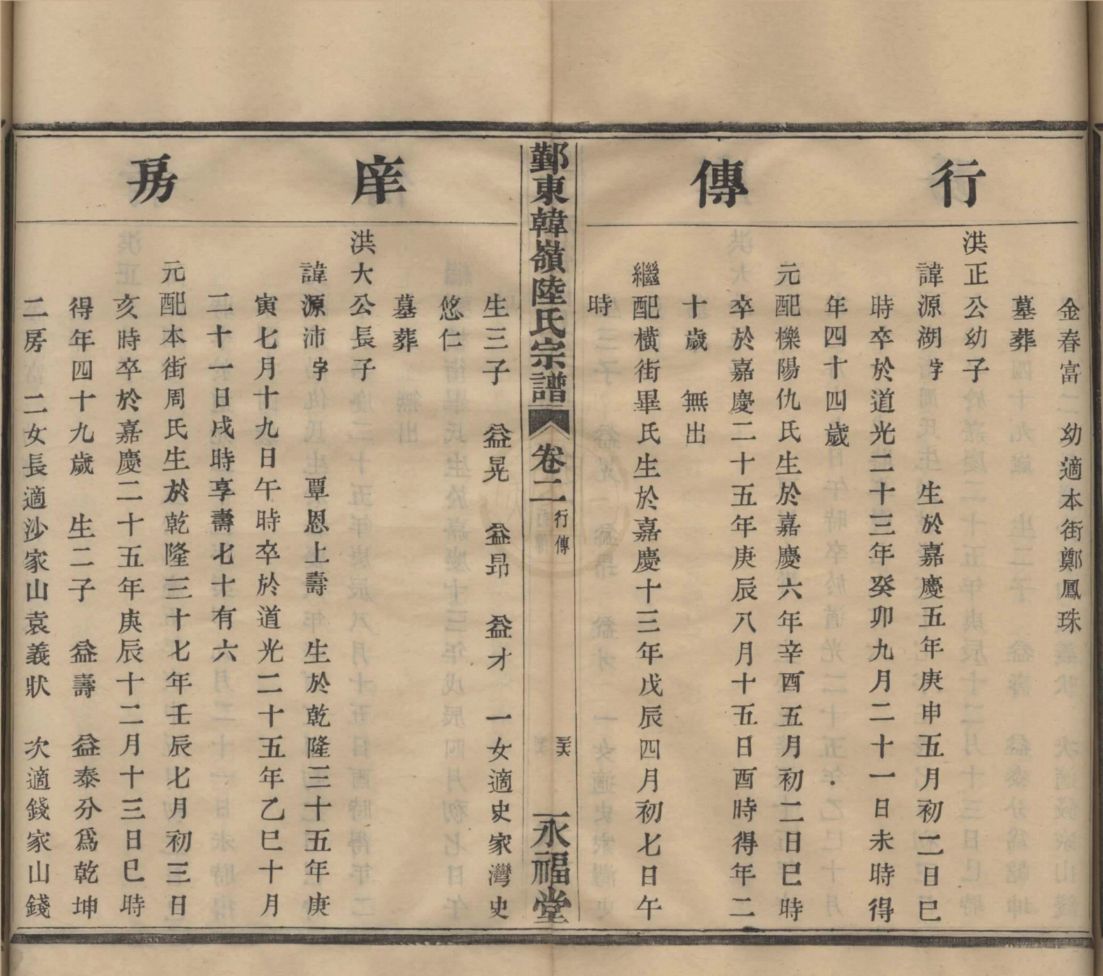 行傳
金春富二幼適本街鄭鳳珠
墓葬
洪正公幼子
諱源湖字 生於嘉慶五年庚申五月初二日巳
時卒於道光二十三年癸卯九月二十一日未時得
年四十四歲
元配櫟陽仇氏生於嘉慶六年辛酉五月初二日巳時
卒於嘉慶二十五年庚辰八月十五日酉時得年二
十歲 無出
繼配橫街畢氏生於嘉慶十三年戊辰四月初七日午
時
鄞東韓嶺陸氏宗譜 卷二 行傳 三六 永福堂
庠房
生三子 益晃 益昂 益才 一女適史家灣史
悠仁
墓葬
洪大公長子
諱源沛字 覃恩上壽 生於乾隆三十五年庚
寅七月十九日午時卒於道光二十五年乙巳十月
二十一日戌時享壽七十有六
元配本街周氏生於乾隆三十七年壬辰七月初三日
亥時卒於嘉慶二十五年庚辰十二月十三日巳時
得年四十九歲 生二子 益壽 益泰分爲乾坤
二房 二女長適沙家山袁義狀 次適錢家山錢